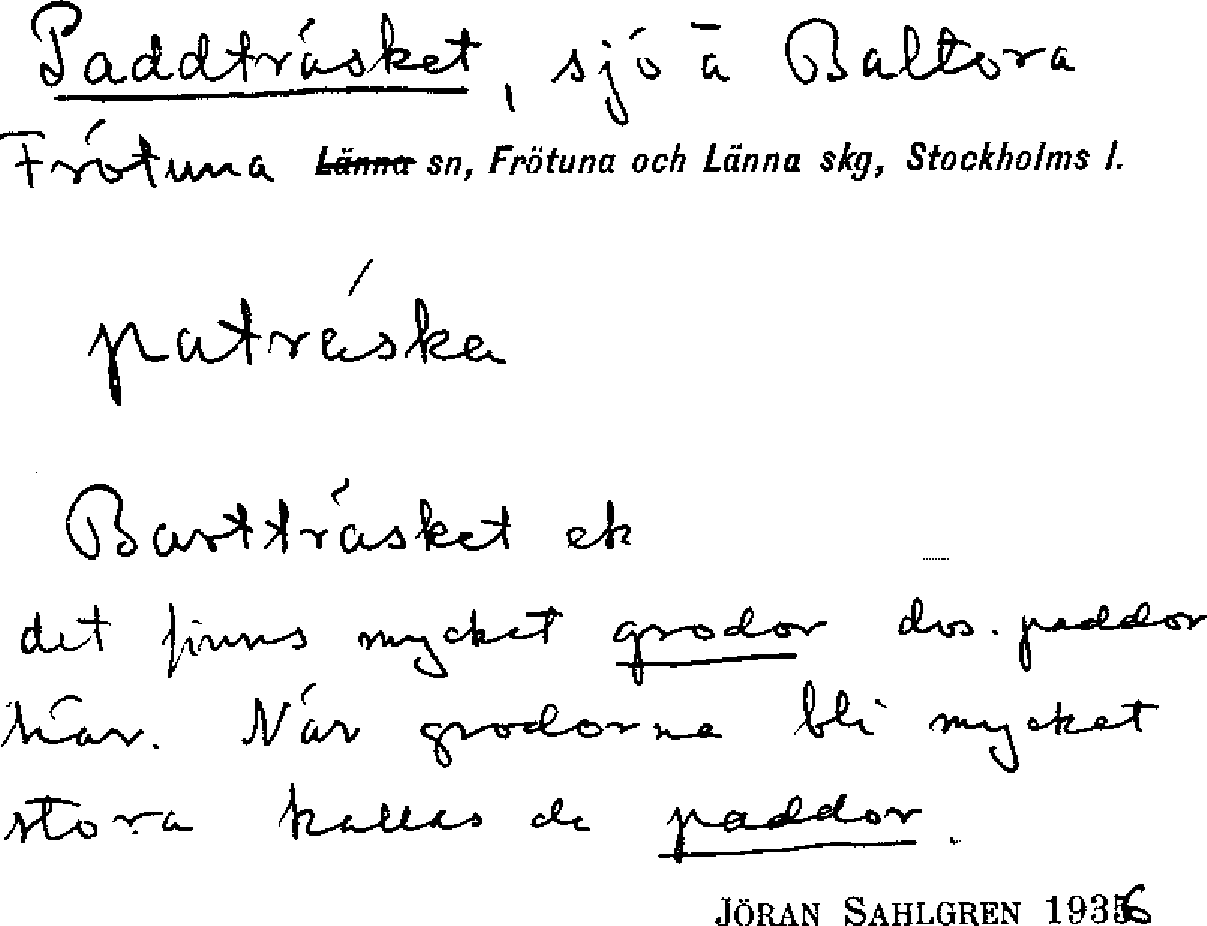 Paddträsket, sjö å Baltora
Frötuna Länna sn, Frötuna och Länna skg, Stockholms l.
paträska
Bastträsket ek
det finns mycket grodor dvs. paddor
här. När grodorna bli mycket
stora kallas de paddor.
JÖRAN SAHLGREN 1936